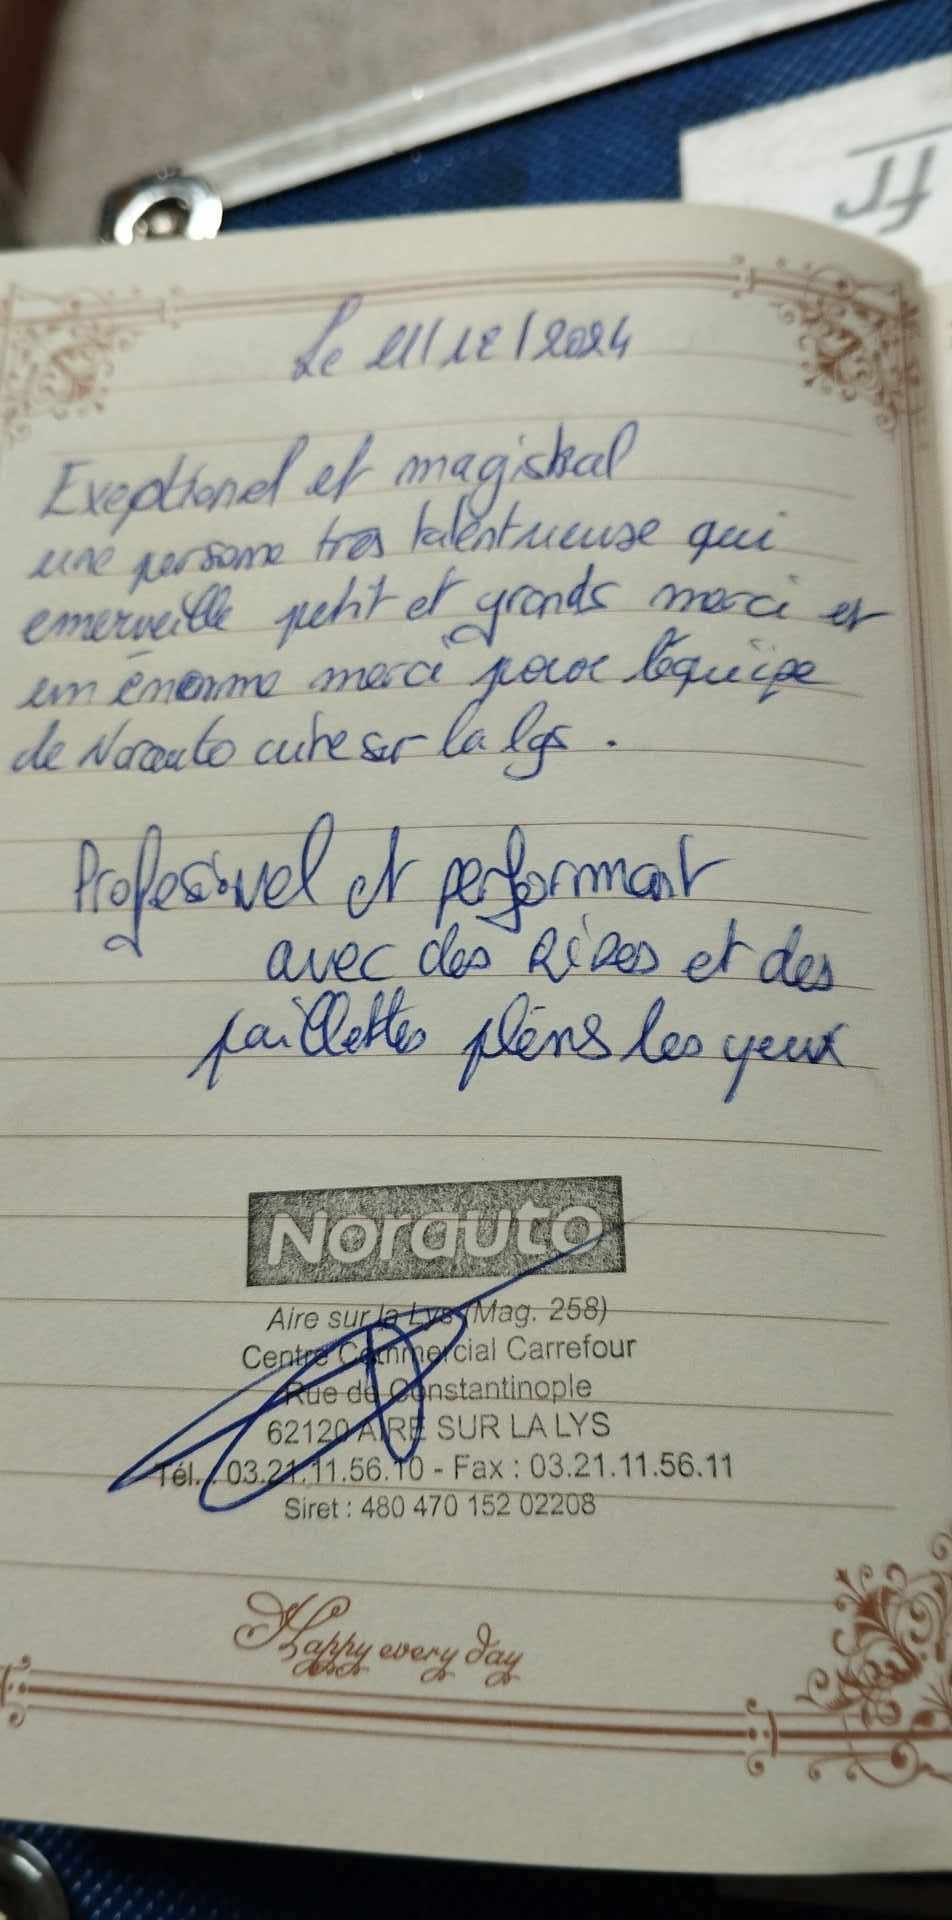 fr
Le 21/12/2024
Exeptionel et magistral
une persone tres talentueuse qui
emerveille petit et grands merci et
un énorme merci pour l'equipe
de Norauto aire sur la lys.
Profesionel et performant
avec des rires et des
paillettes pléns les yeux
Norauto
Aire sur la Lys (Mag. 258)
Centre Commercial Carrefour
Rue de Constantinople
62120 AIRE SUR LA LYS
Tél. : 03.21.11.56.10 - Fax : 03.21.11.56.11
Siret : 480 470 152 02208
Happy every day